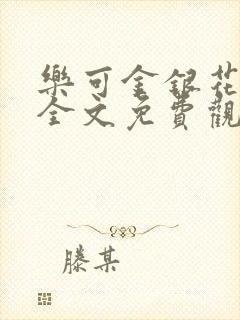 樂可金銀花
全文免費觀
滕某